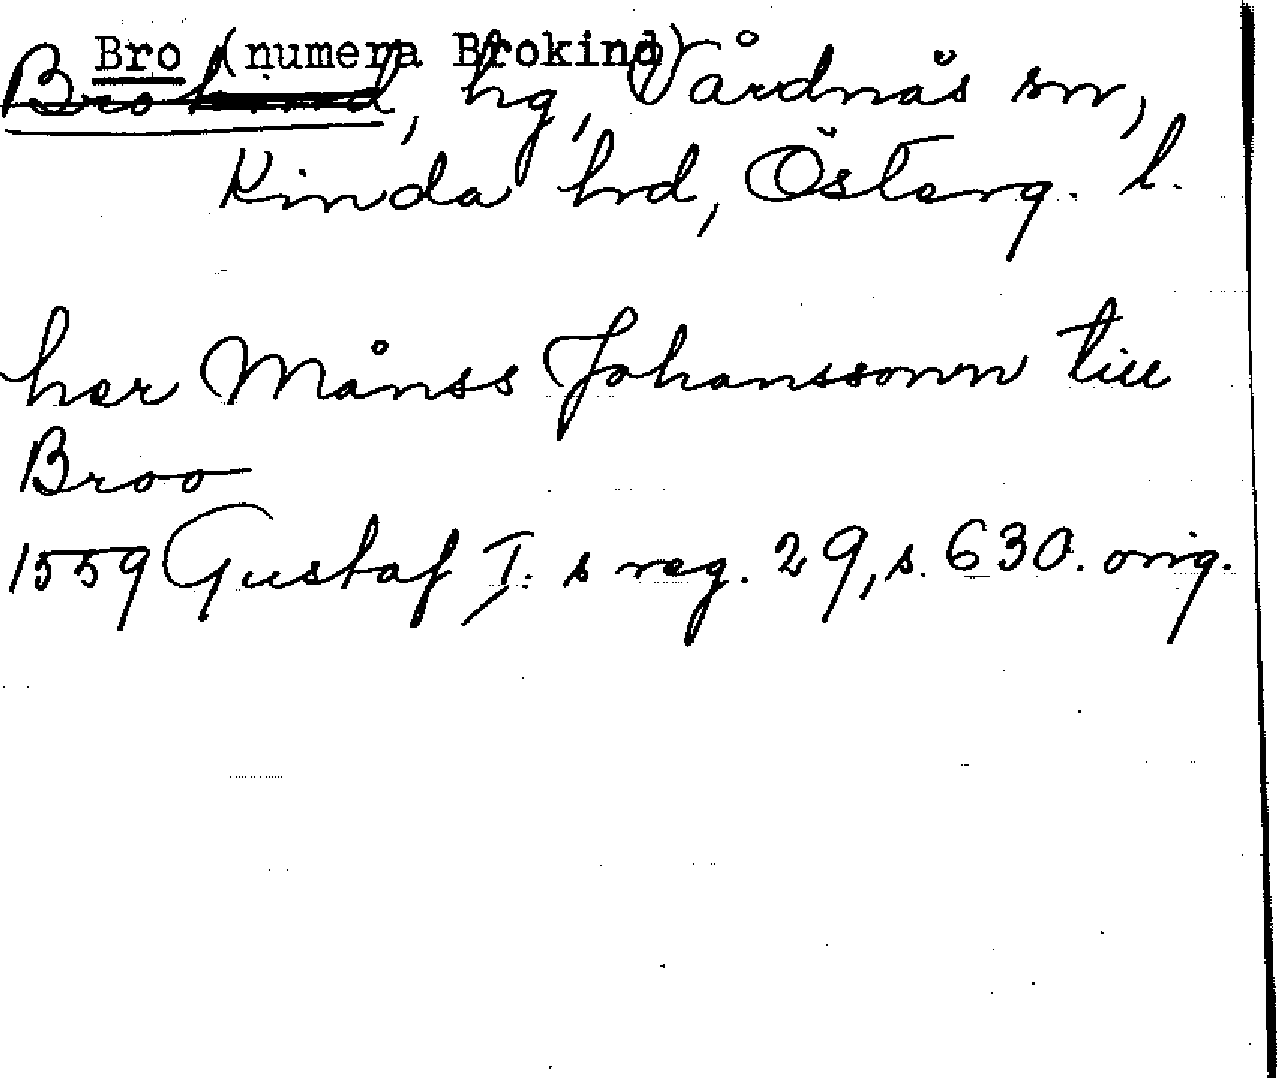 Bro (numera Brokind)
Brokind, hg, Vårdnäs sn,
Kinda hrd, Österg. l.
her Månss Johanssonn till
Broo
1559 Gustaf I:s reg. 29, s. 630. orig.